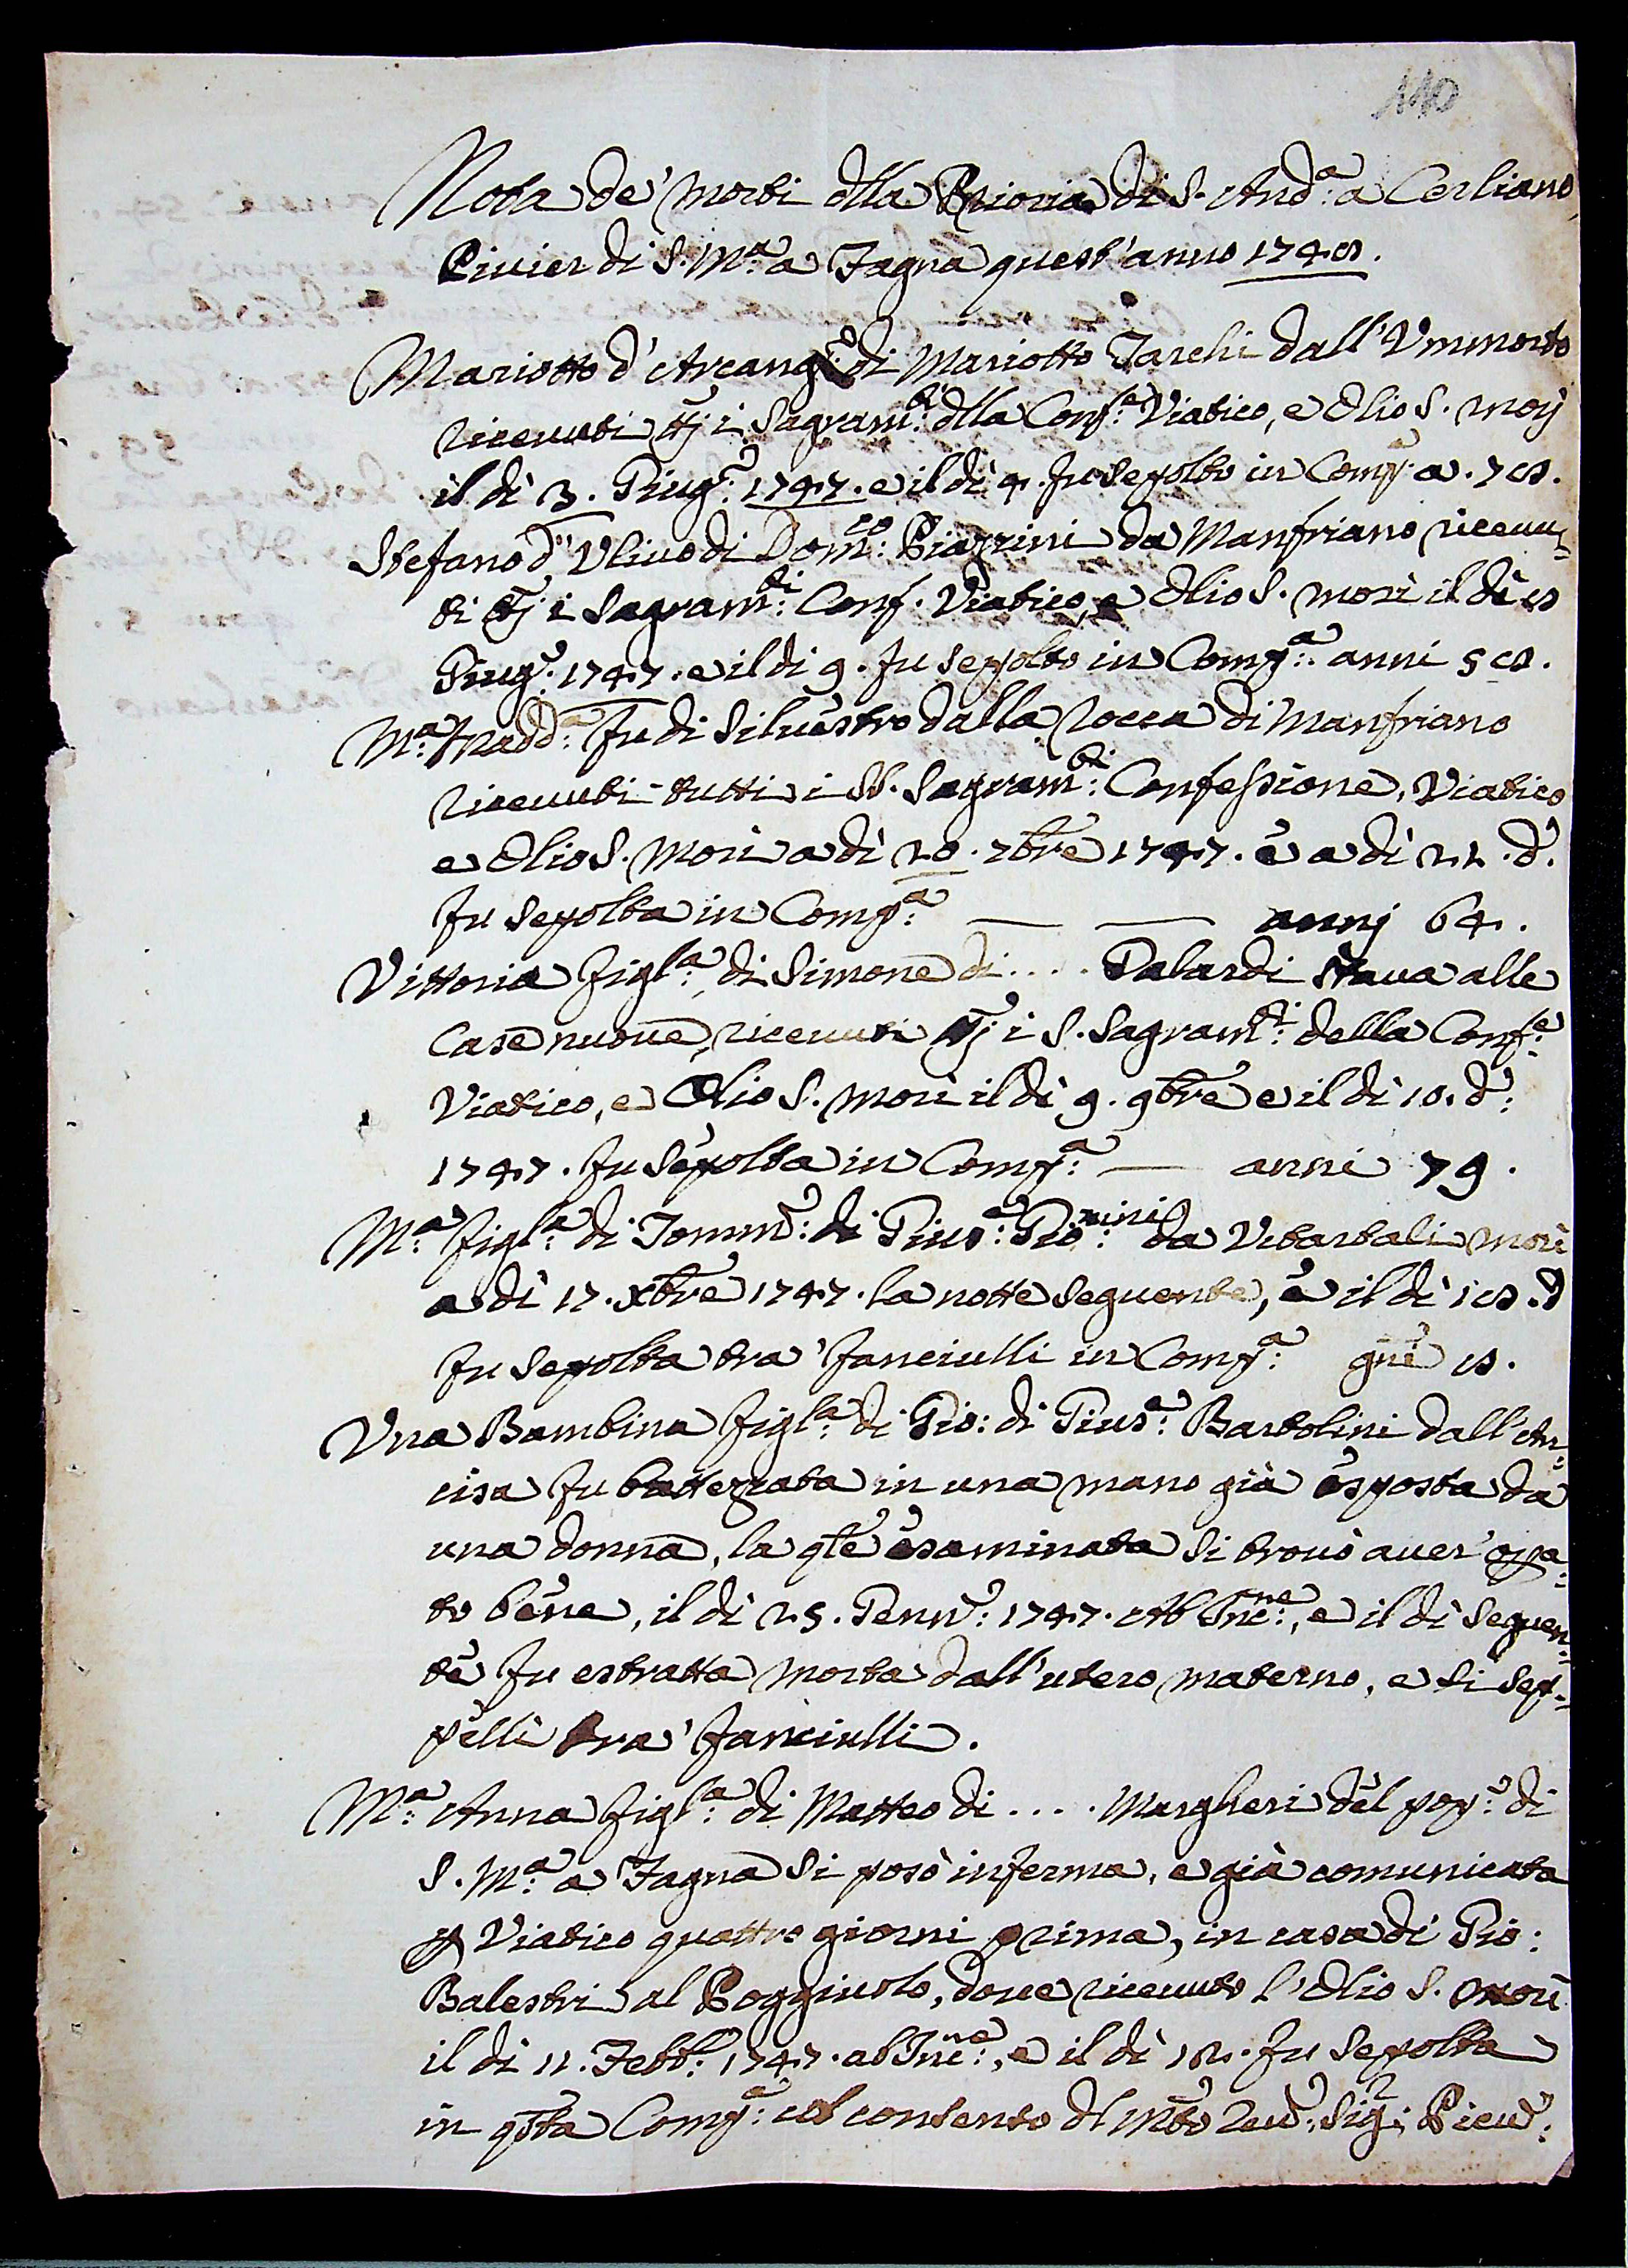 110
Nota de' morti dlla Prioria di S. And.ª a Cerliano
Pivier di S. M.ª a Fagna quest'anno 1748.
Mariotto d'Arcang.º di Mariotto Tarchi dall'Vmmorto
ricevuti tti i Sagram.ti dlla Conf.ª Viatico, e Olio S. morj
il dì 3. Giug.º 1747. e il dì 4. fu sepolto in Comp.ª a. 78.
Stefano d'Vlivo di Dom.co Piazzini da Manfriano ricevu=
ti tti i Sagram.ti Conf. Viatico, e Olio S. morì il dì 8
Giug.º 1747. e il dì 9. fu sepolto in Comp.ª anni 58.
M.ª Madd.ª fu di Silvestro dalla Rocca di Manfriano
ricevuti tutti i SS. Sagram.ti Confessione, Viatico
e Olio S. Morì a dì 20. 7bre 1747. e a dì 22. d.º
fu sepolta in Comp.ª — — annj 64.
Vittoria figl.ª di Simone di .... Talardi stava alle
Case nuove, ricevuti tti i S. Sagram.ti della Conf.e
Viatico, e Olio S. morì il dì 9. 9bre e il dì 10. d.º
1747. fu sepolta in Comp.ª — anni 79.
M.ª figl.ª di Tomm.º di Gius.e Gio:nini da Vibarbali morì
a dì 17. Xbre 1747. la notte seguente, e il dì 18. d
fu sepolta tra' fanciulli in Comp.ª gni 8.
Vna Bambina figl.ª di Gio: di Gius.e Bartolini dall'An=
cisa fu battezzata in una mano già esposta da
una donna, la qle esaminata si trovò aver' opa=
to bene, il dì 25. Genn.º 1747. Ab Inc.ne, e il dì seguen=
te fu estratta morta dall'utero materno, e si sep=
pellì tra' fanciulli.
M.ª Anna figl.ª di Matteo di .... Margheri del pop.º di
S. M.ª a Fagna si posò inferma, e già comunicata
p Viatico quattro giorni prima, in casa di Gio:
Balestri al Poggiuolo, dove ricevuto l'Olio S. morì
il dì 11. Febb.º 1747. ab Inc.ne, e il dì 12. fu sepolta
in qsta Comp.ª col consenso dl Mto Rev.º Sig.r Piev.º